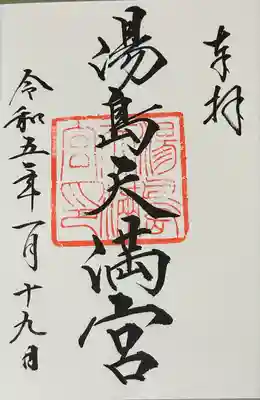 奉拝
湯島天満宮
令和五年一月十九日